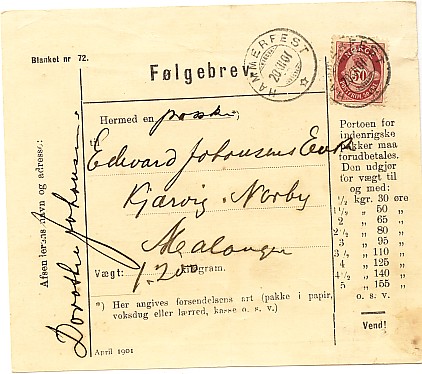 Blanket nr 72.
Følgebrev
HAMMERFEST
20 XII 01
NORGE
50
Hermed en pakke *)
til
Edevard Johansens Enke
Kjærvig Norby
Malangen
Vægt: 1.200 kilogram.
*) Her angives forsendelsens art (pakke i papir,
voksdug eller lærred, kasse o. s. v.)
April 1901
Afsenderens navn og adresse:
Dorothe Johansen
Portoen for
indenrigske
pakker maa
forudbetales.
Den udgjør
for vægt til
og med:
1/2 kgr. 30 øre
1 1/2 „ 50 „
2 „ 65 „
2 1/2 „ 80 „
3 „ 95 „
3 1/2 „ 110 „
4 „ 125 „
4 1/2 „ 140 „
5 „ 155 „
o. s. v.
Vend!